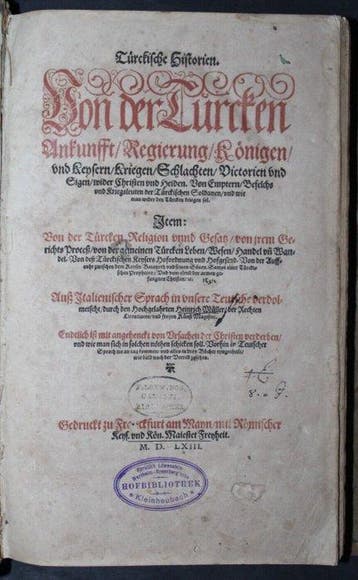 Türckische Historien.
Von der Türcken
Ankunfft/ Regierung/ Königen/
vnd Keysern/ Kriegen/ Schlachten/ Victorien vnd
Sigen/ wider Christen vnd Heiden. Von Emptern/ Befelchs
vnd Kriegsleuten der Türckischen Soldanen/ vnd wie
man wider den Türcken kriegen sol.
Item:
Von der Türcken Religion vnnd Gesatz/ von jrem Ge-
richts Proceß/ von der gemeinen Türcken Leben/ Wesen/ Handel vñ Wan-
del. Von deß Türckischen Keysers Hofordnung vnd Hofgesind. Von der Auff-
ruhr zwischen dem Keyser
vnd seinen Sönen. Sampt einer Türcki-
schen Propheceỹ/ Vnd vom elend der armen ge-
fangenen Christen/ ꝛc.
Auß Italienischer Sprach in vnsere Teutsche verdol-
metscht/ durch den Hochgelahrten Heinrich Müller/ der Rechten
Licentiaten/ vnd freyen Künst Magistrum.
Endtlich ist mit angehenckt von Vrsachen der Christen verderben/
vnd wie man sich in solchen nöhten schicken soll. Vorhin in Teutscher
Sprach nie an tag kommen/ vnd alles in drey Bücher
wie bald nach der Vorred zusehen.
Gedruckt zu Franckfurt am Mayn/ mit Römischer
Keys. vnd Kön. Maiestet Freyheit.
M. D. LXIII.
Fürstlich Löwenstein-
Wertheim-Rosenberg'sche
HOFBIBLIOTHEK
Kleinheubach